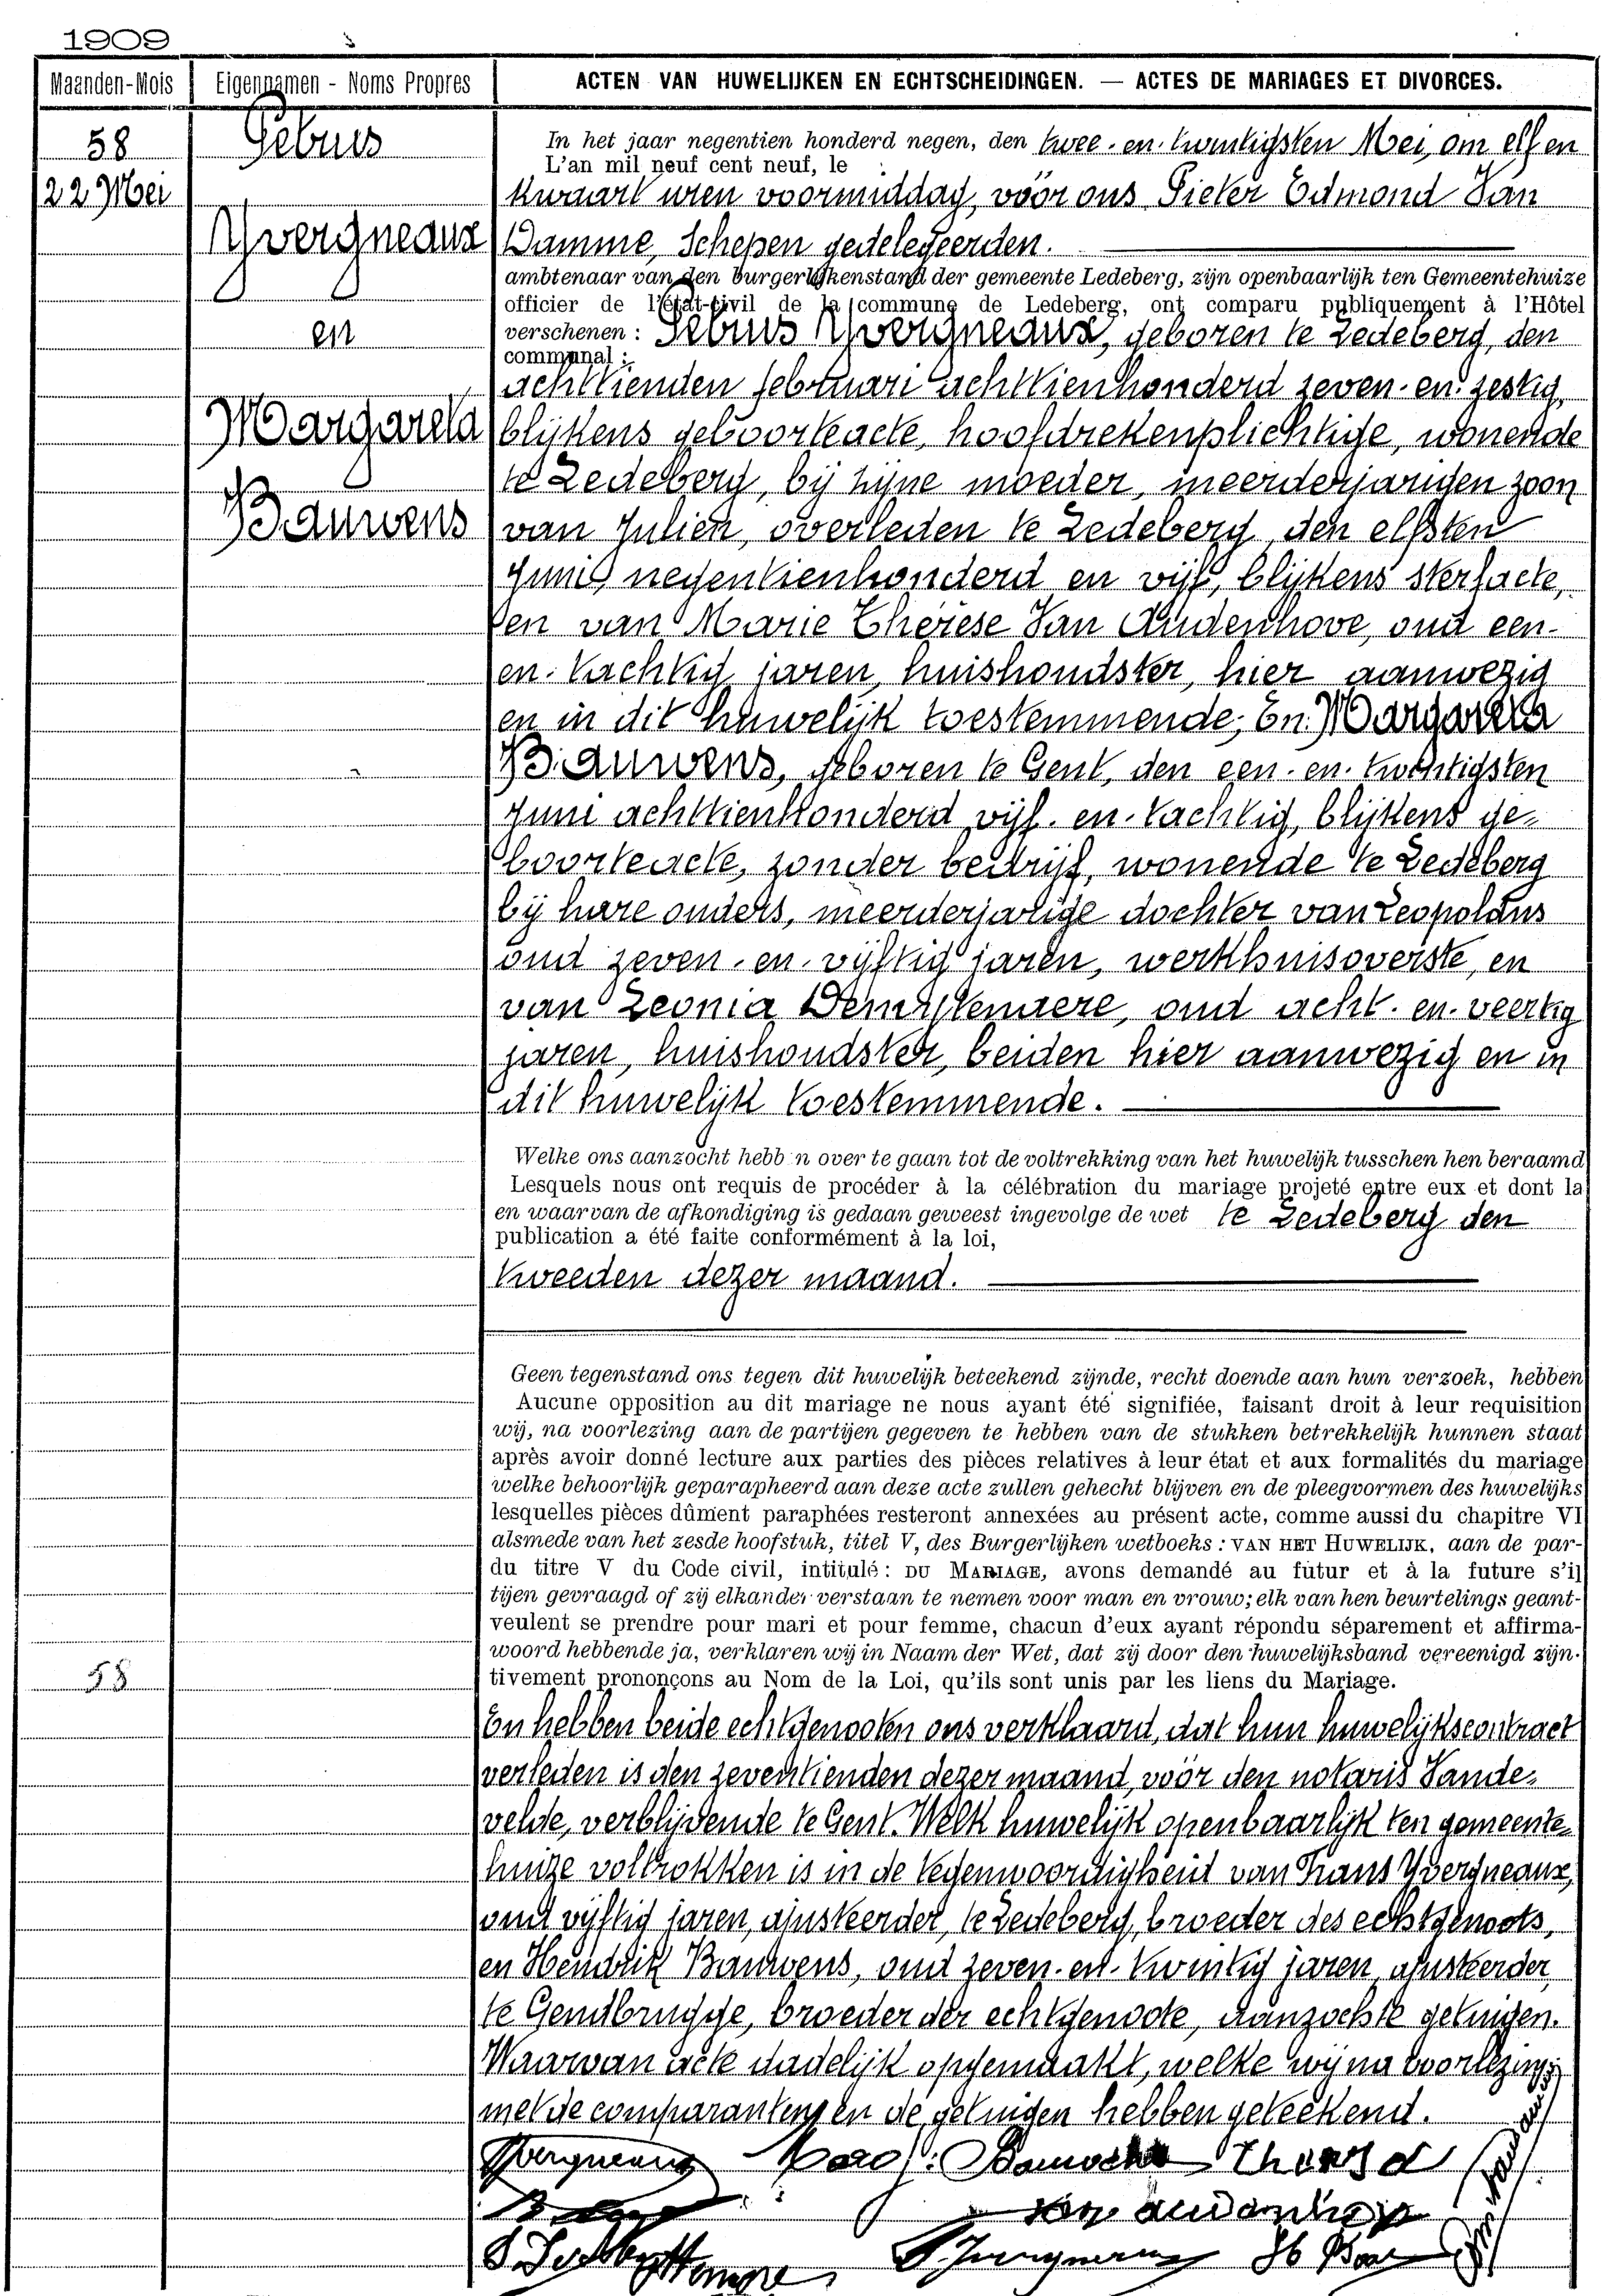 1909
Maanden-Mois Eigennamen - Noms Propres ACTEN VAN HUWELIJKEN EN ECHTSCHEIDINGEN. — ACTES DE MARIAGES ET DIVORCES.
58
22 Mei
Gebuis
Yvergneaux
en
Margareta
Bauwens
In het jaar negentien honderd negen, den twee-en-twintigsten Mei, om elf en
L'an mil neuf cent neuf, le
kwaart uren voormiddag, vóór ons Pieter Edmond Van
Damme, Schepen gedelegeerden.
ambtenaar van den burgerlijkenstand der gemeente Ledeberg, zijn openbaarlijk ten Gemeentehuize
officier de l'état-civil de la commune de Ledeberg, ont comparu publiquement à l'Hôtel
verschenen : Yvergneaux, geboren te Ledeberg, den
communal :
achttienden februari achttienhonderd zeven-en-zestig,
blijkens geboorteacte, hoofdrekenplichtige, wonende
te Ledeberg, bij zijne moeder, meerderjarigen zoon
van Julien, overleden te Ledeberg, den elfsten
Juni negentienhonderd en vijf, blijkens sterfacte,
en van Marie Thérèse Van Audenhove, oud een-
en-tachtig jaren, huishoudster, hier aanwezig
en in dit huwelijk toestemmende; En Margareta
Bauwens, geboren te Gent, den een-en-twintigsten
Juni achttienhonderd vijf-en-tachtig, blijkens ge-
boorteacte, zonder bedrijf, wonende te Ledeberg
bij hare ouders, meerderjarige dochter van Leopoldus
oud zeven-en-vijftig jaren, werkhuisoverste, en
van Leonia, oud acht-en-veertig
jaren, huishoudster, beiden hier aanwezig en in
dit huwelijk toestemmende.
Welke ons aanzocht hebb n over te gaan tot de voltrekking van het huwelijk tusschen hen beraamd
Lesquels nous ont requis de procéder à la célébration du mariage projeté entre eux et dont la
en waarvan de afkondiging is gedaan geweest ingevolge de wet te Ledeberg den
publication a été faite conformément à la loi,
tweeden dezer maand.
Geen tegenstand ons tegen dit huwelijk beteekend zijnde, recht doende aan hun verzoek, hebben
Aucune opposition au dit mariage ne nous ayant été signifiée, faisant droit à leur requisition
wij, na voorlezing aan de partijen gegeven te hebben van de stukken betrekkelijk hunnen staat
après avoir donné lecture aux parties des pièces relatives à leur état et aux formalités du mariage
welke behoorlijk geparapheerd aan deze acte zullen gehecht blijven en de pleegvormen des huwelijks
lesquelles pièces dûment paraphées resteront annexées au présent acte, comme aussi du chapitre VI
alsmede van het zesde hoofstuk, titel V, des Burgerlijken wetboeks : VAN HET HUWELIJK, aan de par-
du titre V du Code civil, intitulé : DU MARIAGE, avons demandé au futur et à la future s'il
tijen gevraagd of zij elkander verstaan te nemen voor man en vrouw; elk van hen beurtelings geant-
veulent se prendre pour mari et pour femme, chacun d'eux ayant répondu séparement et affirma-
woord hebbende ja, verklaren wij in Naam der Wet, dat zij door den huwelijksband vereenigd zijn.
tivement prononçons au Nom de la Loi, qu'ils sont unis par les liens du Mariage.
58
En hebben beide echtgenooten ons verklaard, dat hun huwelijkscontract
verleden is den zeventienden dezer maand, vóór den notaris Vande-
velde, verblijvende te Gent. Welk huwelijk openbaarlijk ten gemeente-
huize voltrokken is in de tegenwoordigheid van Frans Yvergneaux,
oud vijftig jaren, ajusteerder, te Ledeberg, broeder des echtgenoots,
en Hendrik Bauwens, oud zeven-en-twintig jaren, ajusteerder
te Gendbrugge, broeder der echtgenoote, aanzochte getuigen.
Waarvan acte dadelijk opgemaakt, welke wij na voorlezing
met de comparanten en de getuigen hebben geteekend.
Yvergneaux